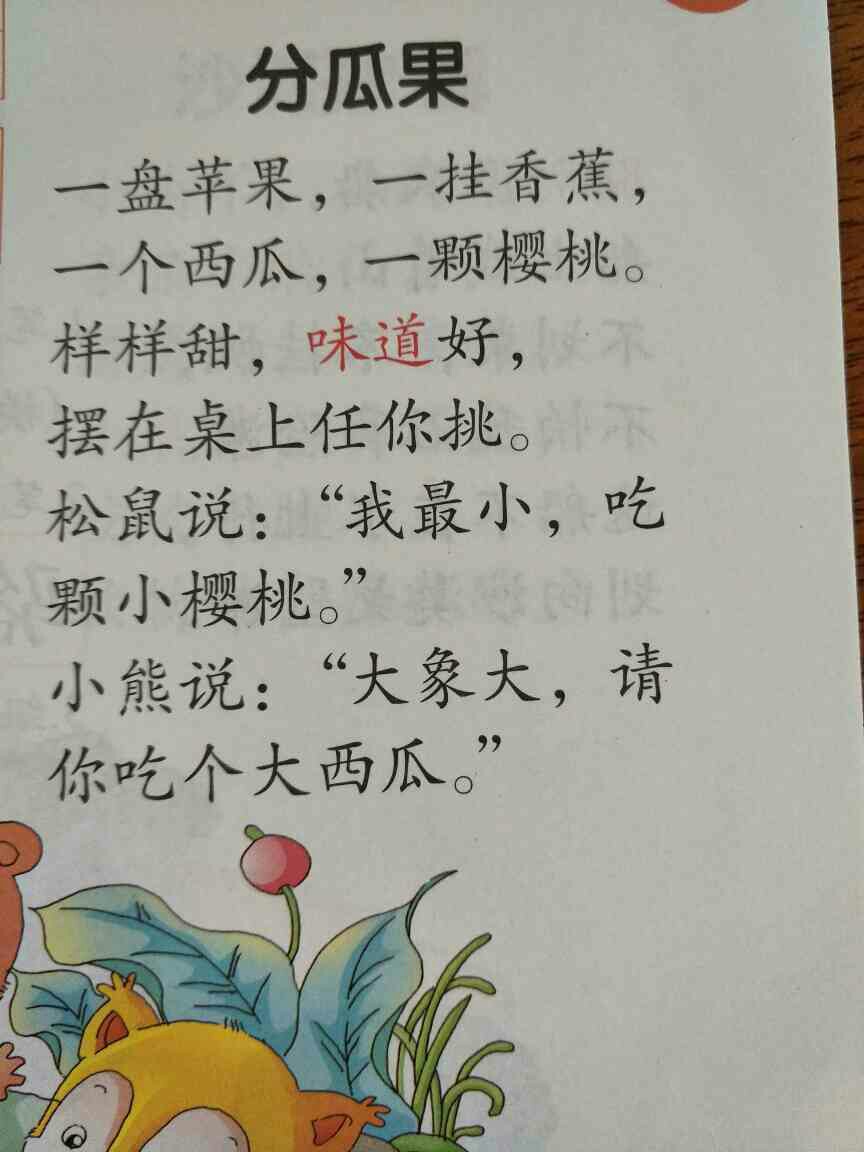 分瓜果
一盘苹果，一挂香蕉，
一个西瓜，一颗樱桃。
样样甜，味道好，
摆在桌上任你挑。
松鼠说：“我最小，吃
颗小樱桃。”
小熊说：“大象大，请
你吃个大西瓜。”